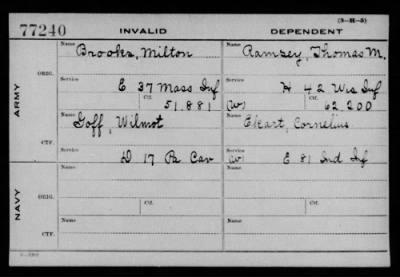 (3-H-5)
77240 INVALID DEPENDENT
Name Name
Brooks, Milton Ramsey, Thomas M.
ORIG.
Service Service
E 37 Mass Inf H 42 Wis Inf
Ctf. Ctf.
51.881 (W) 62.200
ARMY
Name Name
Goff, Wilmot Ekart, Cornelius
CTF.
Service Service
D 17 Pa Cav (W) E 81 Ind Inf
Name Name
NAVY
ORIG. Ctf. Ctf.
Name Name
CTF.